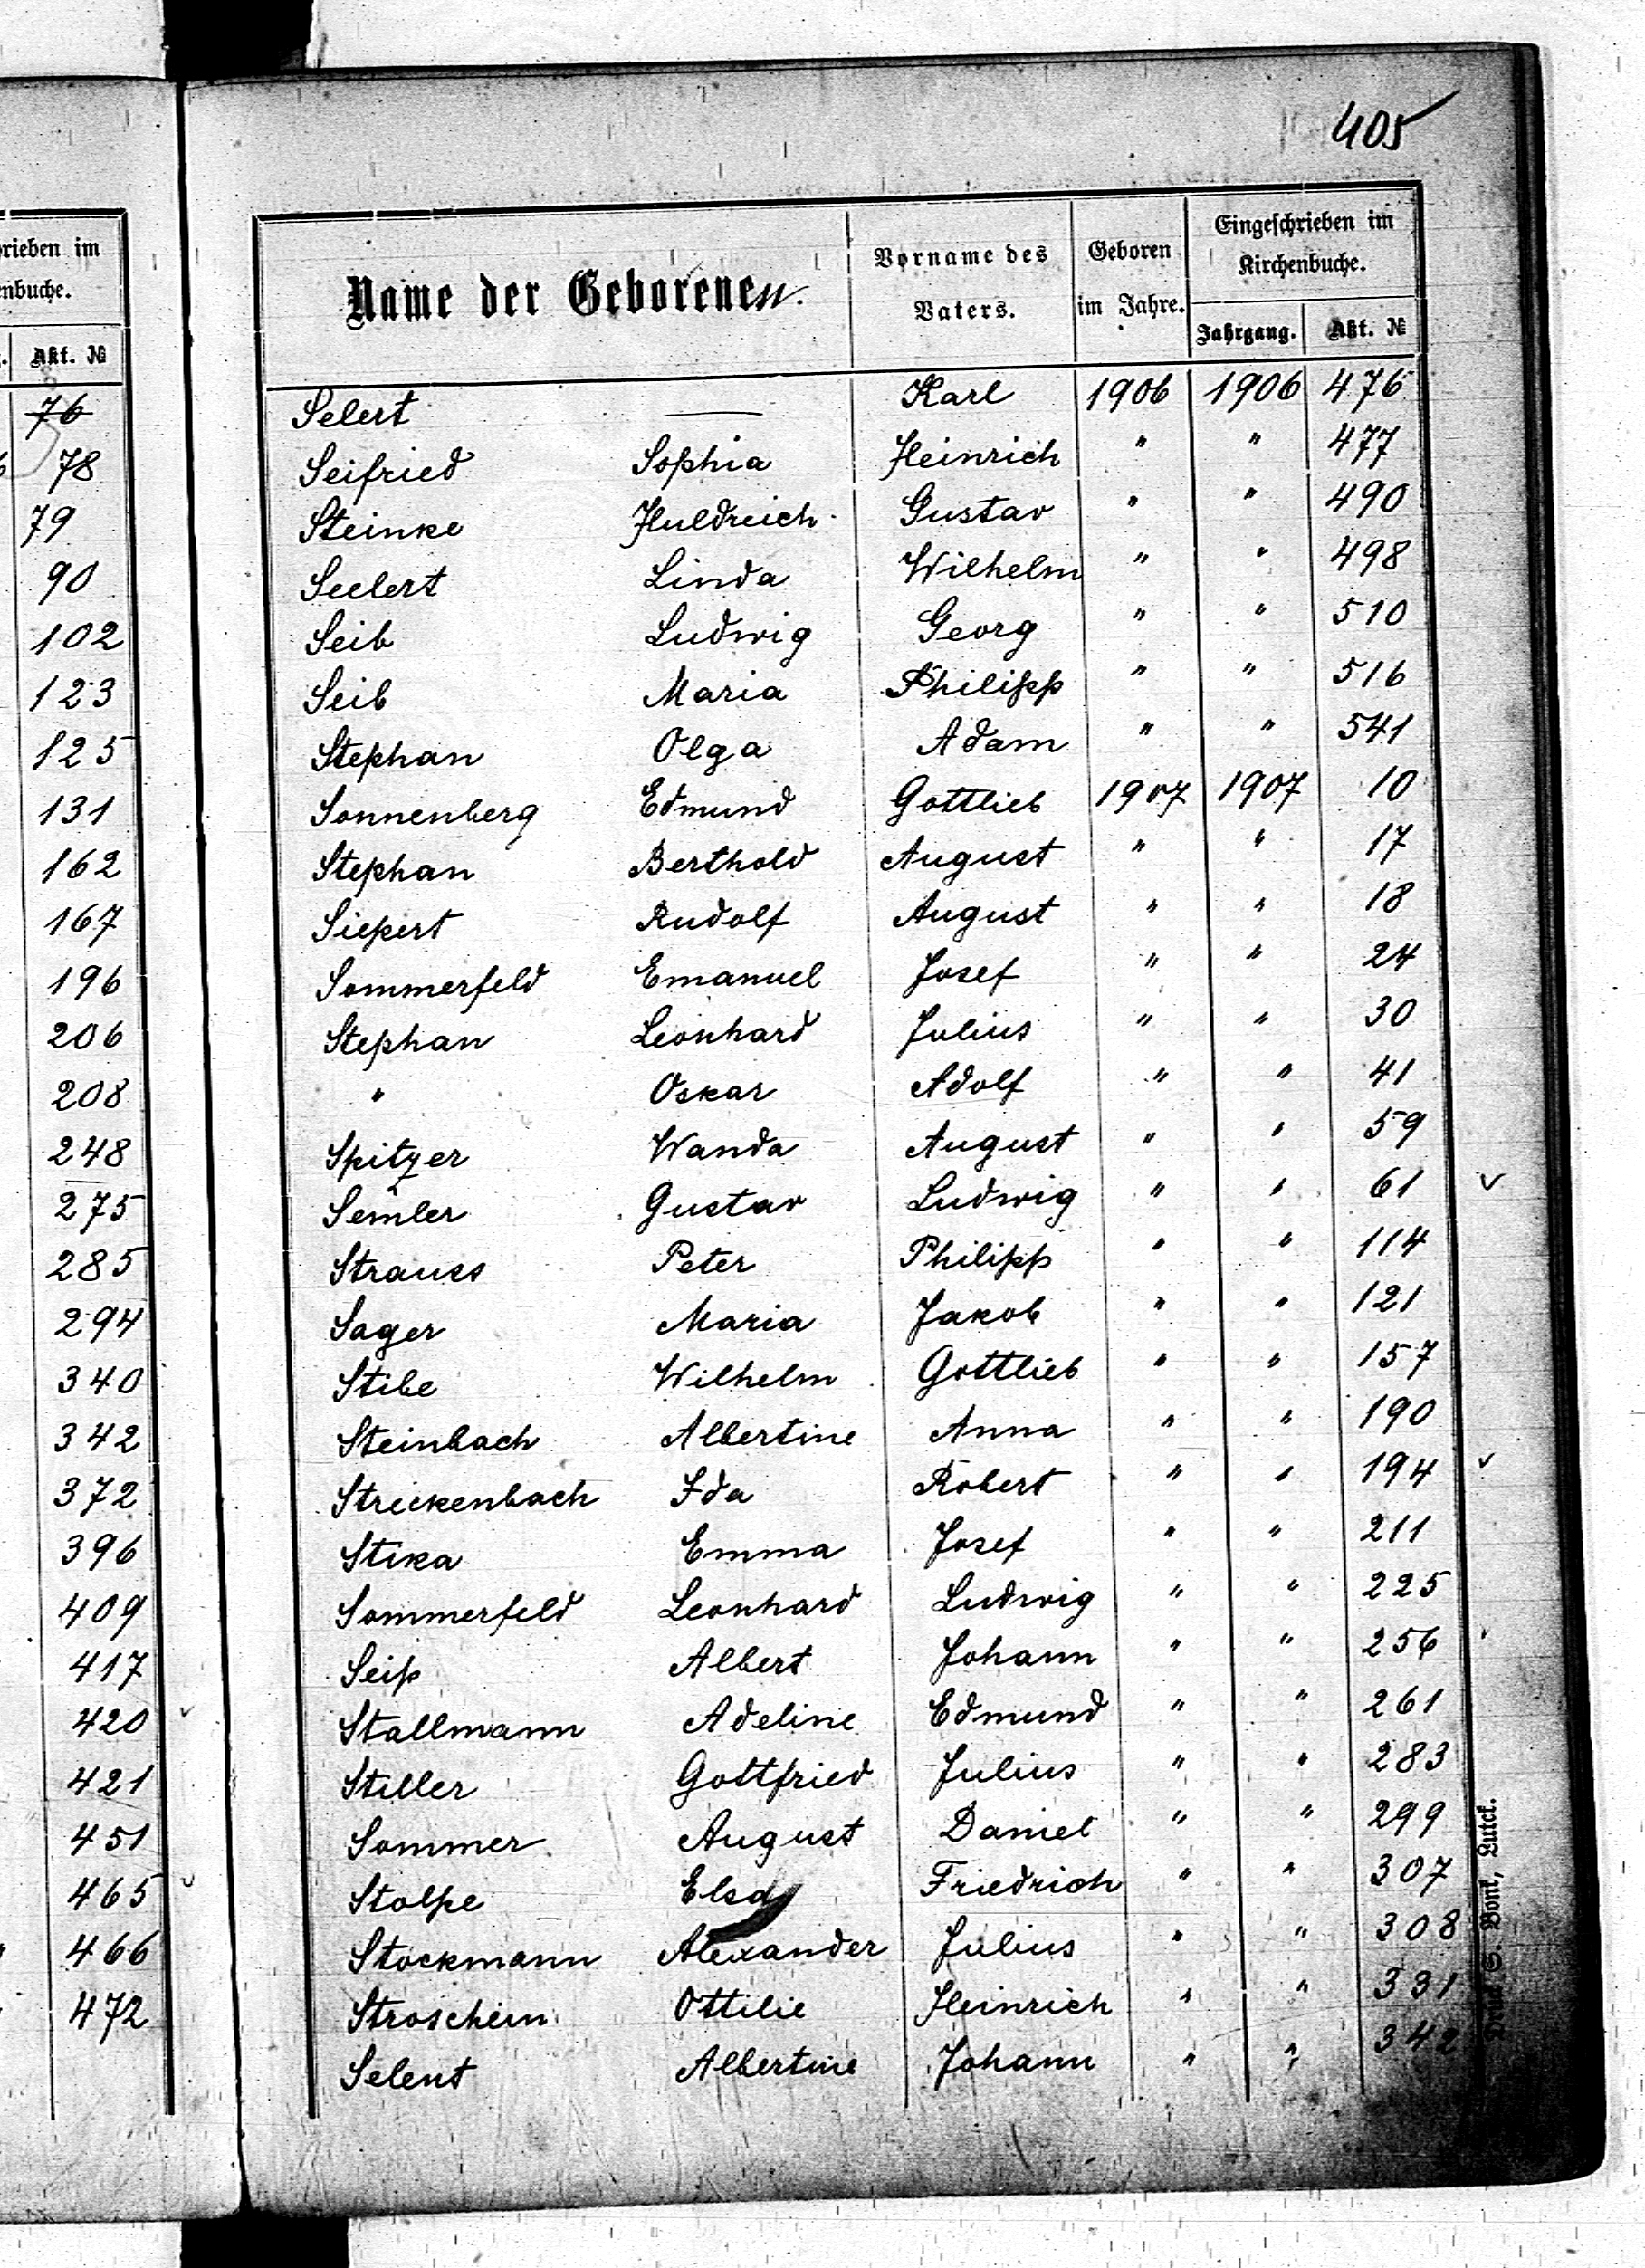 405
rieben im
nbuche.
Akt. №
76
78
79
90
102
123
125
131
162
167
196
206
208
248
275
285
294
340
342
372
396
409
417
420
421
451
465
466
472
Name der Geborenen.
Vorname des Vaters.
Geboren im Jahre.
Eingeschrieben im Kirchenbuche.
Jahrgang. Akt. №
Selert — Karl 1906 1906 476
Seifried Sophia Heinrich " " 477
Steinke Huldreich Gustav " " 490
Seelert Linda Wilhelm " " 498
Seib Ludwig Georg " " 510
Seib Maria Philipp " " 516
Stephan Olga Adam " " 541
Sonnenberg Edmund Gottlieb 1907 1907 10
Stephan Berthold August " " 17
Siepert Rudolf August " " 18
Sommerfeld Emanuel Josef " " 24
Stephan Leonhard Julius " " 30
" Oskar Adolf " " 41
Spitzer Wanda August " " 59
Semler Gustav Ludwig " " 61 ✓
Strauss Peter Philipp " " 114
Sager Maria Jakob " " 121
Stibe Wilhelm Gottlieb " " 157
Steinbach Albertine Anna " " 190
Streckenbach Ida Robert " " 194 ✓
Stika Emma Josef " " 211
Sommerfeld Leonhard Ludwig " " 225
Seip Albert Johann " " 256
Stallmann Adeline Edmund " " 261
Stiller Gottfried Julius " " 283
Sommer August Daniel " " 299
Stolpe Elsa Friedrich " " 307
Stockmann Alexander Julius " " 308
Stroschein Ottilie Heinrich " " 331
Selent Albertine Johann " " 342
Bonk, Lutck.